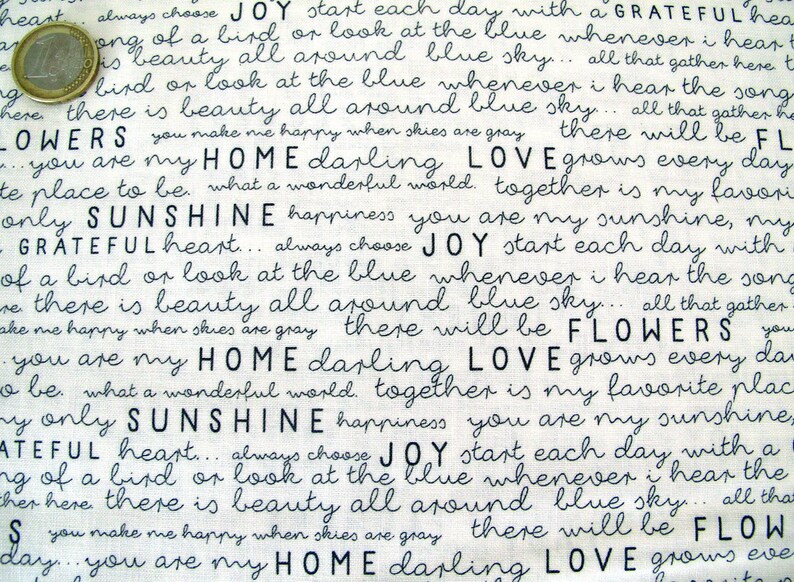 heart... always choose JOY start each day with a GRATEFUL hear
song of a bird or look at the blue whenever i hear t
there is beauty all around blue sky... all that gather here t
ng of a bird or look at the blue whenever i hear the song
here. there is beauty all around blue sky... all that gather he
LOWERS you make me happy when skies are gray there will be FL
...you are my HOME darling LOVE grows every day
te place to be. what a wonderful world. together is my favori
only SUNSHINE happiness you are my sunshine, my
GRATEFUL heart... always choose JOY start each day with
of a bird or look at the blue whenever i hear the song
re. there is beauty all around blue sky... all that gather
ake me happy when skies are gray there will be FLOWERS you
.you are my HOME darling LOVE grows every day
o be. what a wonderful world. together is my favorite plac
ny only SUNSHINE happiness you are my sunshine,
ATEFUL heart... always choose JOY start each day with a
ng of a bird or look at the blue whenever i hear the
ther here. there is beauty all around blue sky... all that
S you make me happy when skies are gray there will be FLOW
day...you are my HOME darling LOVE grows eve